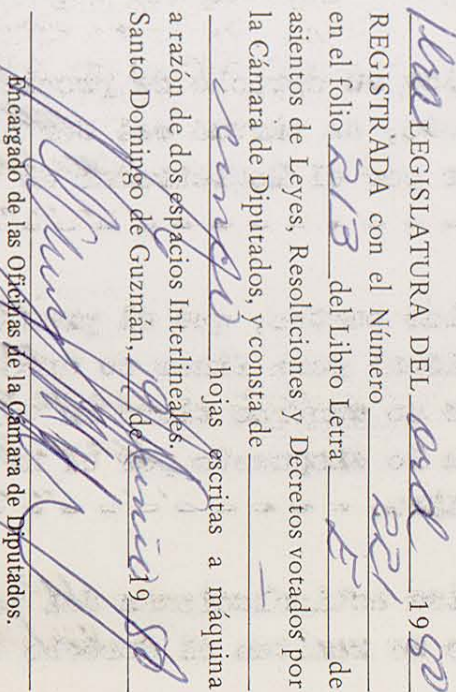 1era LEGISLATURA DEL ord. 1980
REGISTRADA con el Número 221
en el folio 213 del Libro Letra de
asientos de Leyes, Resoluciones y Decretos votados por
la Cámara de Diputados, y consta de
cinco hojas escritas a máquina
a razón de dos espacios Interlineales.
Santo Domingo de Guzmán, de Junio 1980
Encargado de las Oficinas de la Cámara de Diputados.